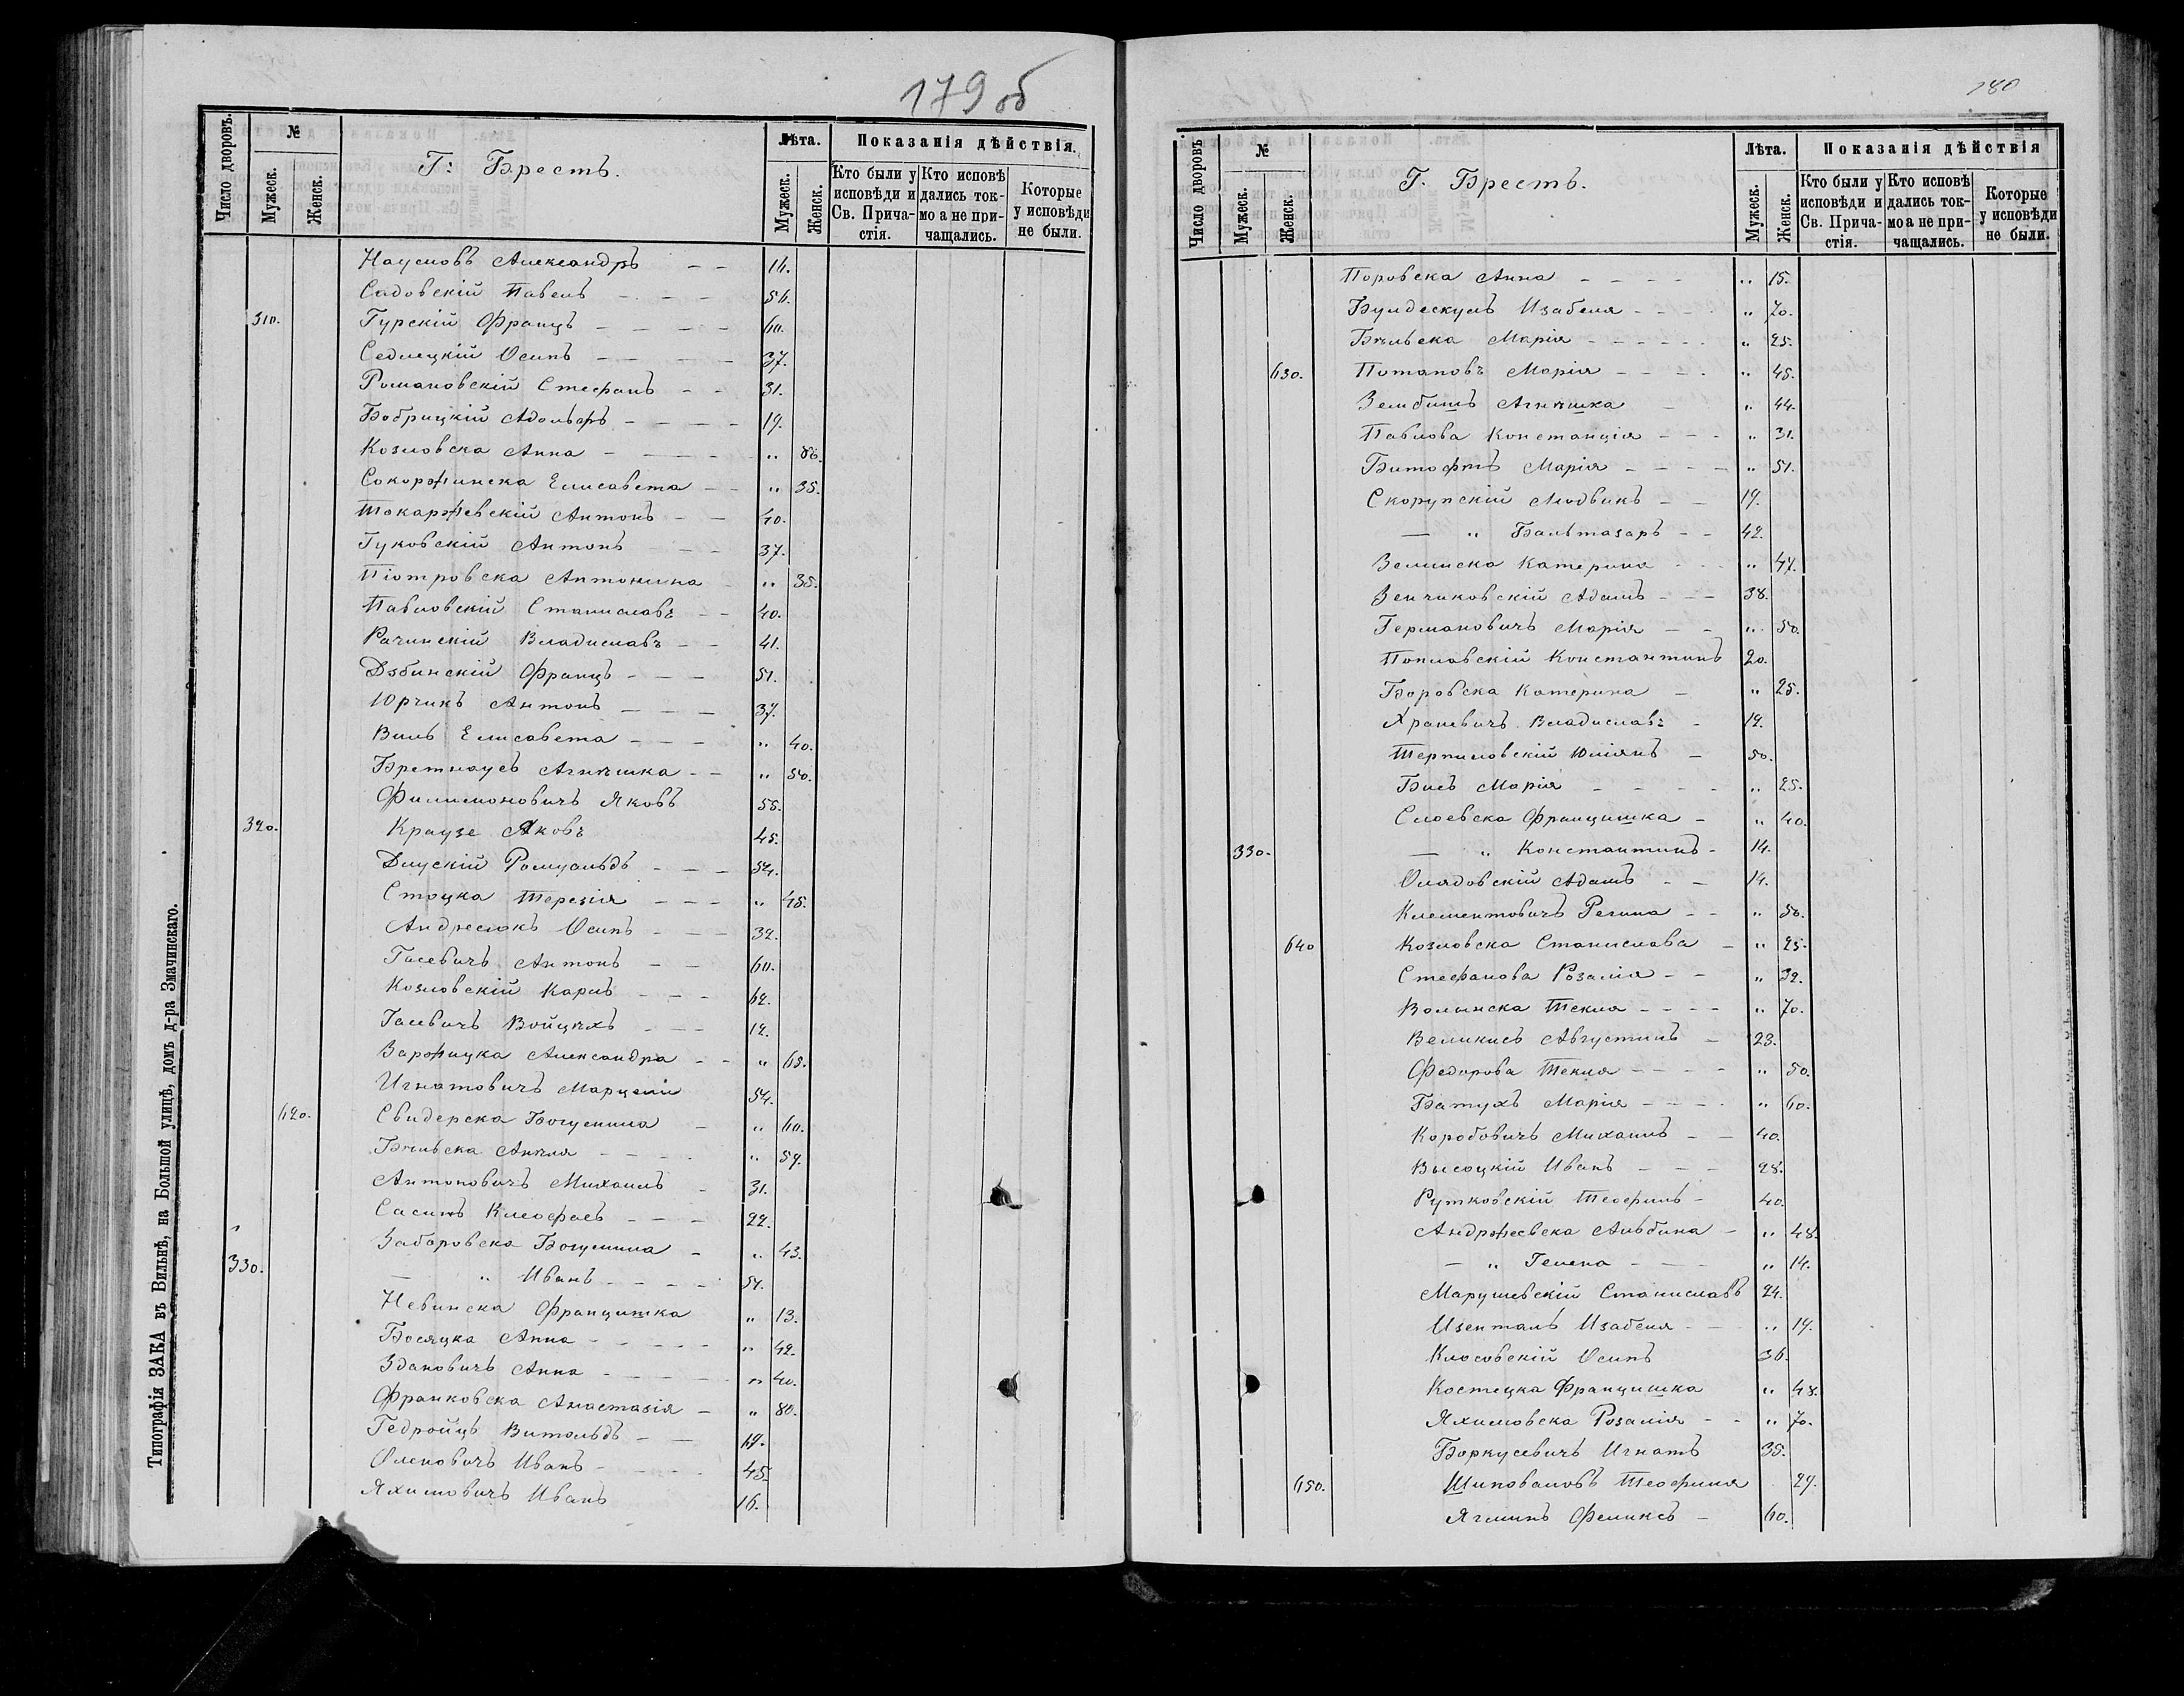 179 об
Число дворовъ.
№
Мужеск.
Женск.
Г: Брестъ.
Лѣта.
Мужеск.
Женск.
Показанія дѣйствія.
Кто были у исповѣди и Св. Прича-стія.
Кто исповѣ дались ток-мо а не при-чащались.
Которые у исповѣди не были.
Наумовъ Александръ — — 16.
Садовскій Павелъ — — — 56.
310. Гурскій Францъ — — — — 60.
Седлецкій Осипъ — — — — 37.
Романовскій Стефанъ — — 31.
Бобрицкій Адольфъ — — — — 19.
Козловска Анна — — — — „ 86.
Сокоржинска Елисавета — — „ 35.
Токаржевскій Антонъ — — 40.
Гуковскій Антонъ — — — 37.
Піотровска Антонина — „ 35.
Павловскій Станиславъ — — 40.
Рачинскій Владиславъ — — 41.
Дэбинскій Францъ — — — 51.
Юрчикъ Антонъ — — — 37.
Виль Елисавета — — — „ 40.
Бретнаусъ Агнѣшка — — „ 50.
Филимоновичъ Яковъ 55.
320. Краузе Яковъ 45.
Длускій Ромуальдъ — — — 54.
Стоцка Терезія — — — „ 45.
Андреюкъ Осипъ — — — 32.
Гасевичъ Антонъ — — 60.
Козловскій Карлъ — — — 62.
Гасевичъ Войцѣхъ — — — 12.
Заржицка Александра — — „ 65.
Игнатовичъ Марцели 54.
620. Свидерска Богумила — „ 60.
Бѣльска Анѣля — — — — „ 59.
Антоновичъ Михаилъ — 31.
Сасинъ Клеофасъ — — — 22.
Заборовска Богумила — „ 43.
330. — „ Иванъ — — — — 54.
Невинска Францишка „ 13.
Босяцка Анна — — — — — „ 42.
Здановичъ Анна — — — — — „ 40.
Франковска Анастазія — „ 80.
Гедройцъ Витольдъ — — 17.
Оленовичъ Иванъ — — — — 45.
Яхимовичъ Иванъ 16.
Типографія ЗАКА въ Вильнѣ, на Большой улицѣ, домъ д-ра Змачинскаго.
180
Число дворовъ
№
Мужеск.
Женск.
Г. Брестъ.
Лѣта.
Мужеск.
Женск.
Показанія дѣйствія
Кто были у исповѣди и Св. Прича-стія.
Кто исповѣ дались ток-мо а не при-чащались.
Которые у исповѣди не были.
Поровска Анна — — — — „ 15.
Изабеля — — — — „ 70.
Бѣльска Марія — — — — — „ 25.
630. Потаповъ Марія — — — — „ 45.
Агнѣшка — „ 44.
Павлова Констанція — — — „ 31.
Марія — — — — „ 51.
Скорупскій Людвикъ — — 19.
— „ Бальтазаръ — — 42.
Зелинска Катерина — — — „ 47.
Зенчиковскій Адамъ — — — 38.
Германовичъ Марія — — „ 50.
Поплавскій Константинъ 20.
Боровска Катерина — „ 25.
Храневичъ Владиславъ — 12.
Терпиловскій Юліянъ — 50.
Бись Марія — — — — „ 25.
Слоевска Францишка — „ 40.
330. — „ Константинъ — 14.
Олядовскій Адамъ — — 14.
Клементовичъ Регина — — „ 50.
640 Козловска Станислава — „ 25.
Стефанова Розалія — — „ 32.
Волынска Текля — — — — „ 70.
Великисъ Августинъ — 23.
Федорова Текля — — — — „ 50.
Батухъ Марія — — — — „ 60.
Коробовичъ Михаилъ — — 40.
Высоцкій Иванъ — — — 28.
Рутковскій Теофилъ — 40.
Андржеевска Альбина — „ 48.
— „ Гелена — — — „ 14.
Марушевскій Станиславъ 24.
Изенталь Изабеля — — „ 19.
Клосовскій Осипъ 36.
Костецка Францишка „ 48.
Яхимовска Розалія — — „ 70.
Боркусевичъ Игнатъ 35.
650. Шиповаловъ Теофиля 27.
Ягминъ Феликсъ — 60.